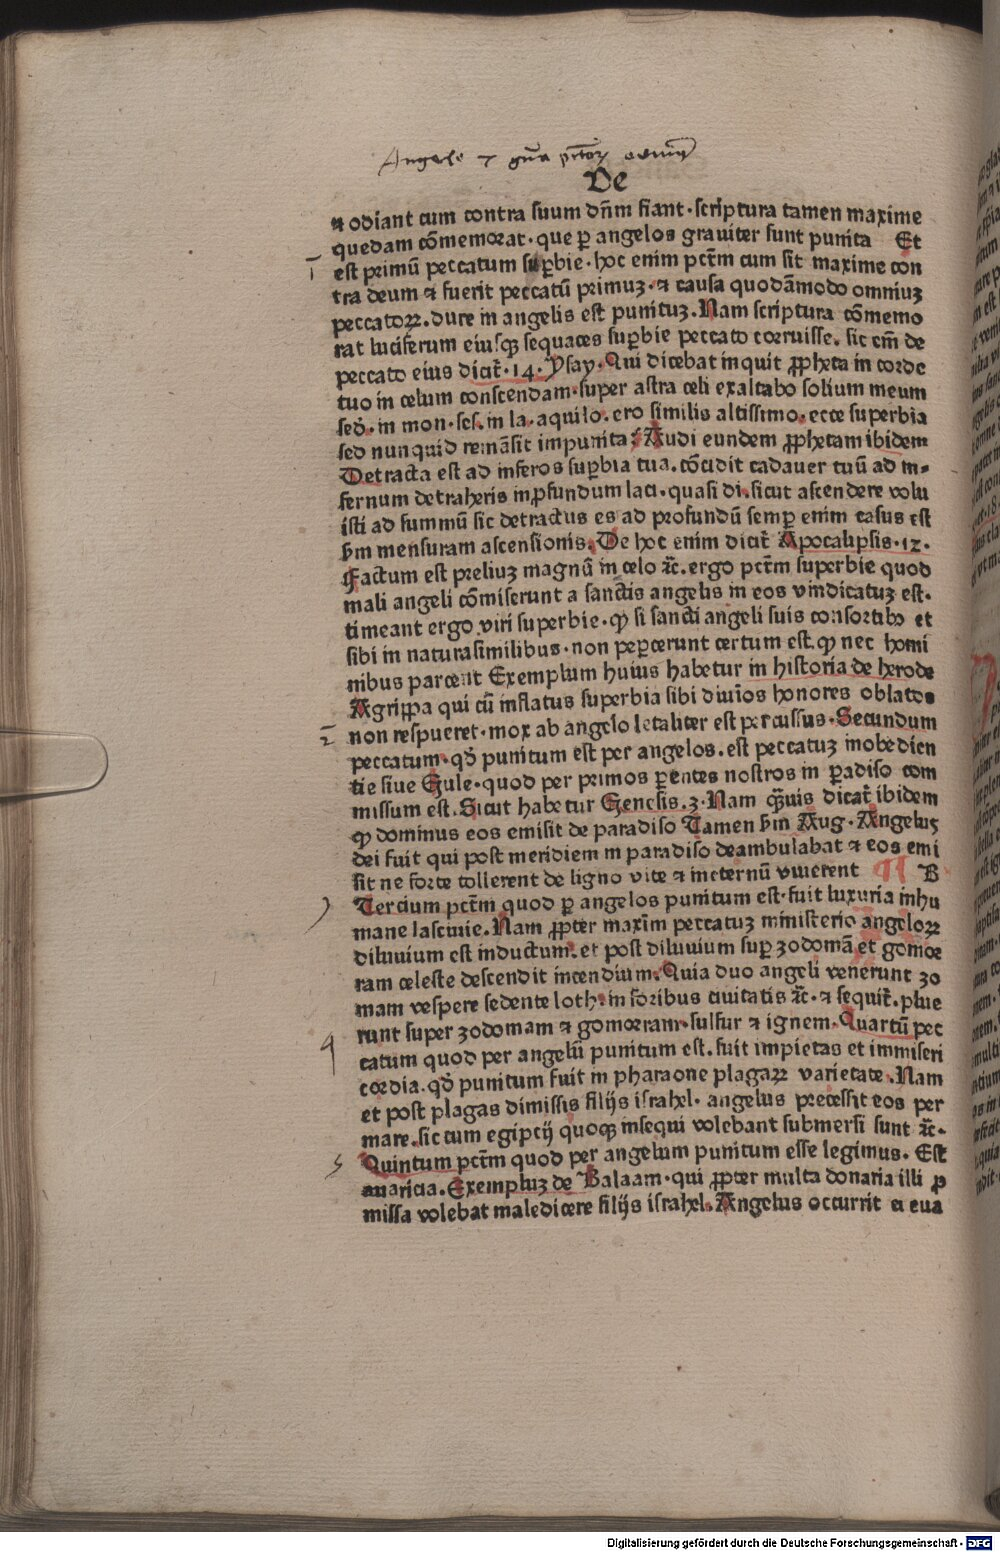 De
⁊ odiant cum contra suum dñm fiant·scriptura tamen maxime
quedam cōmemorat·que ꝑ angelos grauiter sunt punita Et
est primū peccatum suꝑbie·hoc enim pctm̄ cum sit maxime con
tra deum ⁊ fuerit peccatū primuꝫ·⁊ causa quodāmodo omniuꝫ
peccatoꝝ. dure in angelis est punituꝫ. Nam scriptura cōmemo
rat luciferum eiusqꝫ sequaces suꝑbie peccato corruisse. sic em̄ de
peccato eius dicit̄·14·Ysay·Qui dicebat inquit ꝓpheta in corde
tuo in celum conscendam·super astra celi exaltabo solium meum
sed̄·in mon·ses·in la·aquilo·ero similis altissimo·ecce superbia
sed nunquid remāsit impunita? Audi eundem ꝓphetam ibidem
Detracta est ad inferos suꝑbia tua·cōcidit cadauer tuū ad in-
fernum detraheris in ꝓfundum laci·quasi di·sicut ascendere volu
isti ad summū sic detractus es ad profundū semꝑ enim casus est
ẜm mensuram ascensionis. De hoc enim dicit̄ Apocalipsis·12·
Factum est preliuꝫ magnū in celo ⁊c̄. ergo pctm̄ superbie quod
mali angeli cōmiserunt a sanctis angelis in eos vindicatuꝫ est.
timeant ergo viri superbie·ꝙ si sancti angeli suis consortibꝰ et
sibi in natura similibus·non peꝑcerunt certum est ꝙ nec homi
nibus parcent Exemplum huius habetur in historia de herode
Agrippa qui cū inflatus superbia sibi diuīos honores oblatos
non respueret·mox ab angelo letaliter est percussus·Secundum
peccatum·qd̄ punitum est per angelos·est peccatuꝫ inobedien
tie siue Gule·quod per primos ꝑentes nostros in ꝑadiso com
missum est. Sicut habetur Genesis·3·Nam qꝫuis dicat̄ ibidem
ꝙ dominus eos emisit de paradiso Tamen ẜm Aug·Angelus
dei fuit qui post meridiem in paradiso deambulabat ⁊ eos emi
sit ne forte tollerent de ligno vite ⁊ in eternū viuerent ¶ B
Tercium pctm̄ quod ꝑ angelos punitum est·fuit luxuria inhu
mane lasciuie. Nam ꝓpter maxīm peccatuꝫ ministerio angeloꝝ
diluuium est inductum·et post diluuium suꝑ zodomā et gomor
ram celeste descendit incendium. Quia duo angeli venerunt zo
mam vespere sedente loth·in foribus ciuitatis ⁊c̄·⁊ sequit̄·plue
runt super zodomam ⁊ gomorram·sulfur ⁊ ignem. Quartū pec
catum quod per angelū punitum est·fuit impietas et immiseri
cordia·qd̄ punitum fuit in pharaone plagaꝝ varietate. Nam
et post plagas dimissis filijs israhel·angelus precessit eos per
mare·sic cum egiptij quoqꝫ insequi volebant submersi sunt ⁊c̄·
Quintum pctm̄ quod per angelum punitum esse legimus. Est
auaricia. Exempluꝫ de Balaam·qui ꝓpter multa donaria illi ꝓ
missa volebat maledicere filijs israhel. Angelus occurrit ei eua
Digitalisierung gefördert durch die Deutsche Forschungsgemeinschaft - DFG